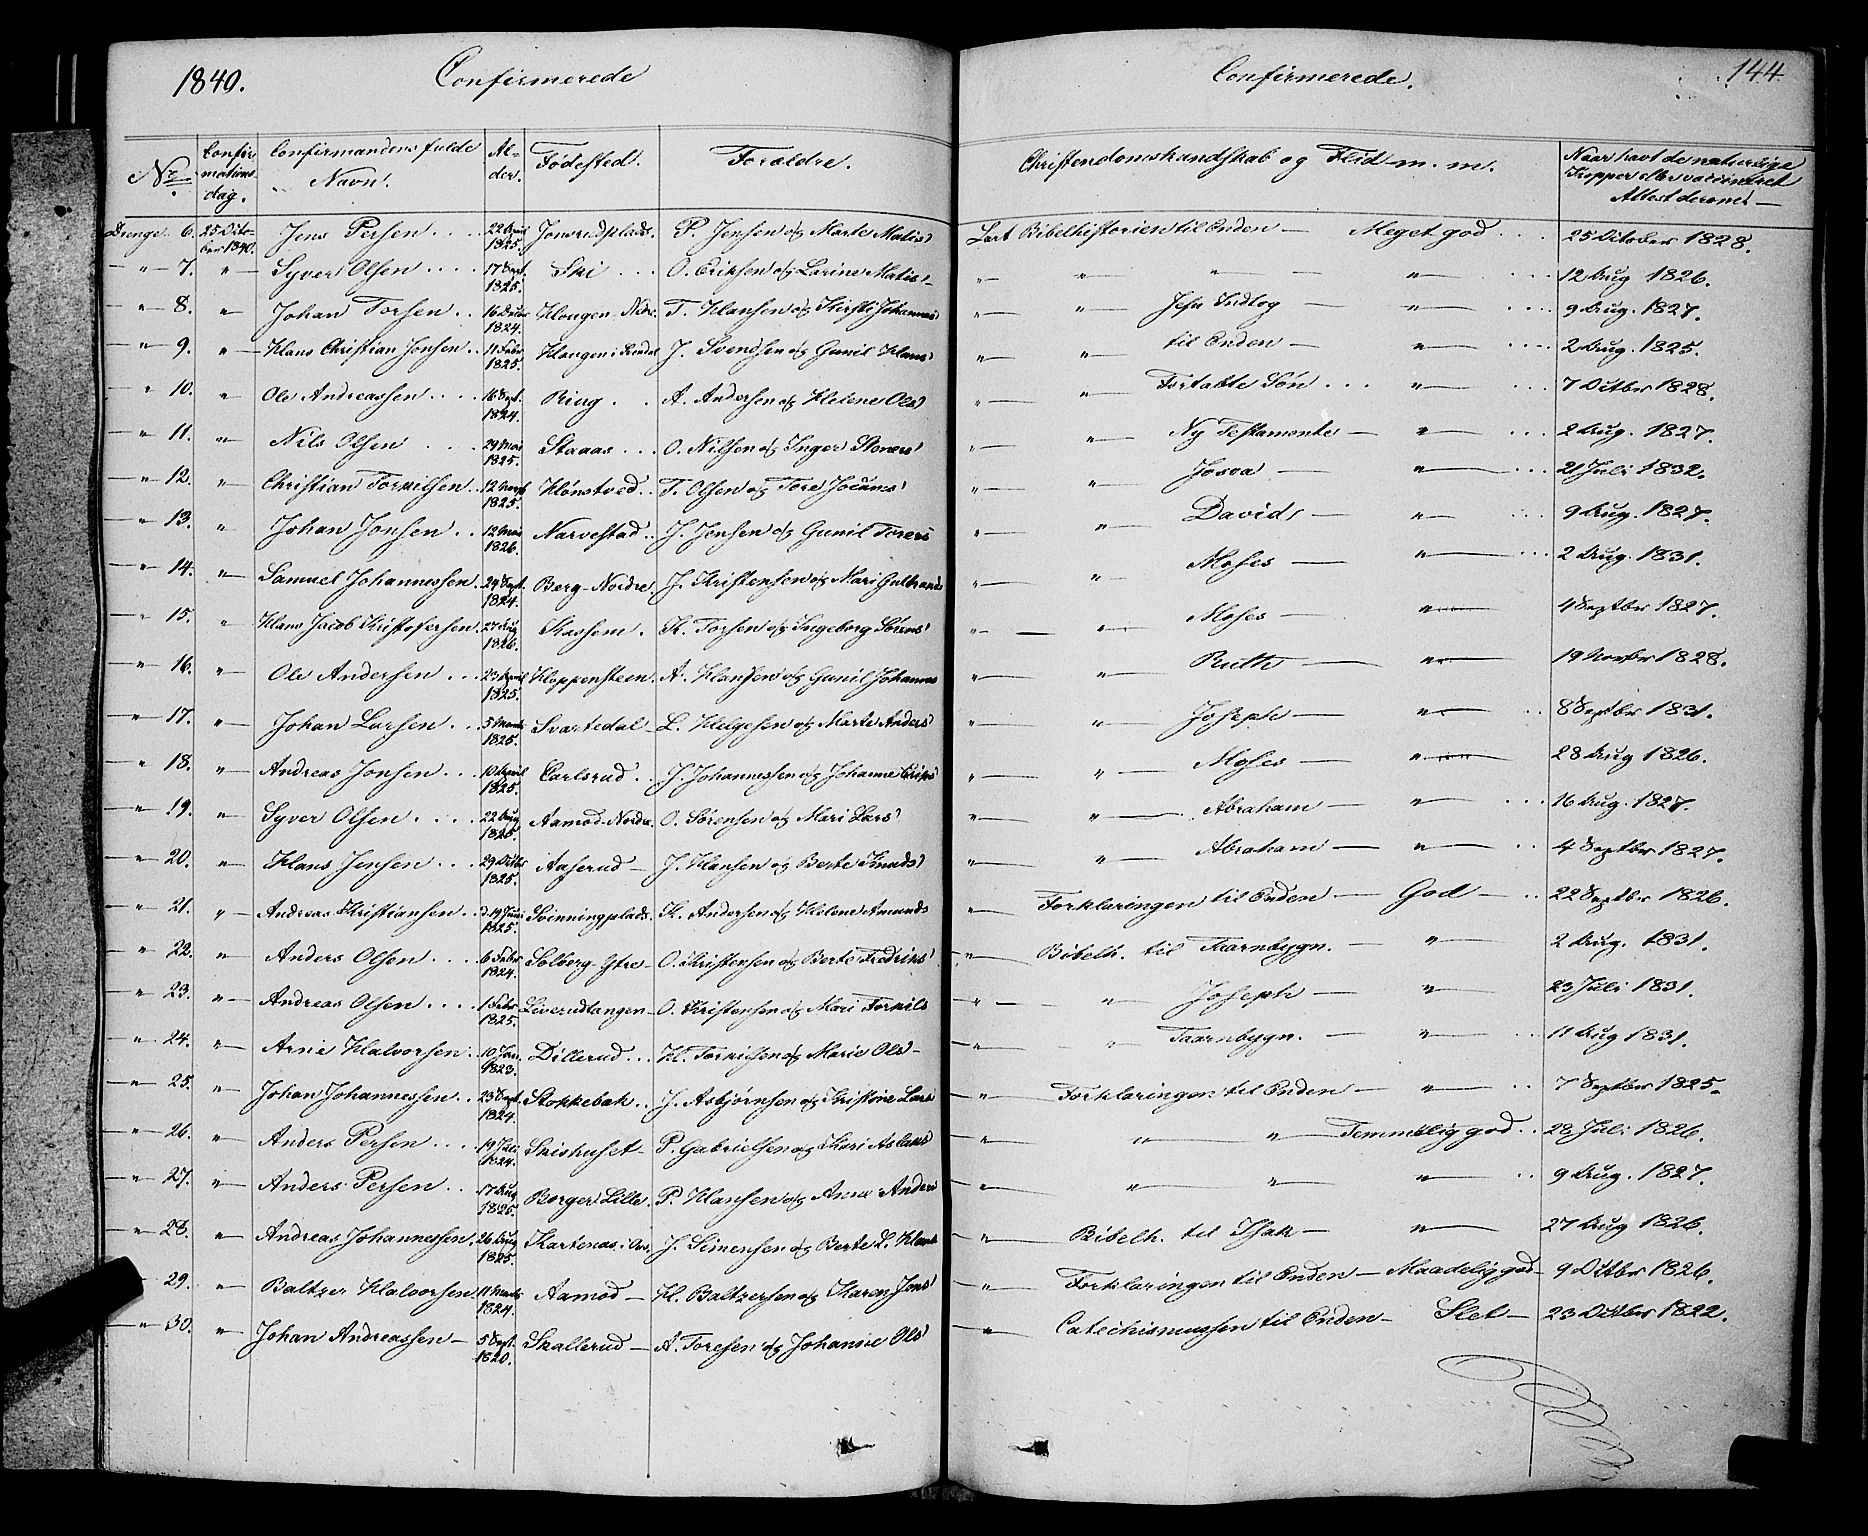 1840. Confirmerede
Confirmerede. 144
No. Confirmations dag. Confirmandens fulde Navn. Alder. Fødested. Forældre. Christendomskundskab og Flid m. m. Naar havt de naturlige Kopper eller vaccineret Attest derom
Drenge 6. 25 October 1840. Jens Persen 22 April 1825. Jonsrudplads. P. Jensen og Marte Matis Lært Bibelhistorien til Enden — Meget god 25 October 1828.
" 7. " Syver Olsen 17 Sept. 1825. Ski O. Eriksen og Larine Matis " " " " 12 Aug 1826.
" 8. " Johan Torsen 16 Decbr 1824. Haugen Nedre. T. Hansen og Kirsti Johannes " " Jesu Indtog " 9 Aug. 1827.
" 9. " Hans Christian Jonsen 11 Febr 1825. Haugen i J. Svendsen og Gunil Hans " " til Enden " 2 Aug. 1825.
" 10. " Ole Andreassen 16 Sept. 1824. Ring A. Andersen og Helene Ols " " Fortabte Søn " 7 Octbr 1828.
" 11. " Nils Olsen 29 Mai 1825. Staaas O. Nilsen og Inger Steners " " Ny Testamente " 2 Aug. 1827.
" 12. " Christian Torkilsen 12 1825. Hønstved T. Olsen og Tore Jocums " " Josva " 21 Juli 1832.
" 13. " Johan Jonsen 12 Mai 1826. Narvestad J. Jensen og Gunil Torers " " Davids " 9 Aug. 1827.
" 14. " Samuel Johannessen 29 Sept. 1824. Berg Nordre. J. Kristensen og Mari Gulbrands " " Moses " 2 Aug. 1831.
" 15. " Hans Jacob Kristofersen 27 Aug 1826. Kassem. K. Torsen og Ingeborg Sørens " " Moses " 4 Septbr 1827.
" 16. " Ole Andersen 23 April 1825. Kloppensteen. A. Hansen og Gunil Johannes " " Ruth " 19 Novbr 1828.
" 17. " Johan Larsen 5 Marts 1825. Svartedal L. Helgesen og Marte Anders " " Joseph " 8 Septbr 1831.
" 18. " Andreas Jonsen 10 April 1825. Carlsrud J. Johannessen og Johanne Eriks " " Moses " 28 Aug 1826.
" 19. " Syver Olsen 22 Aug 1825. Aamod Nordre. O. Sørensen og Mari Lars " " Abraham " 16 Aug. 1827.
" 20. " Hans Jensen 29 Octbr 1825. Aaserud J. Hansen og Berte Knuds " " Abraham " 4 Septbr 1827.
" 21. " Andreas Kristiansen d. 19 Juni 1825. Svinningplads. K. Andersen og Helene Amunds " Forklaringen til Enden — God 22 Septbr 1826.
" 22. " Anders Olsen 6 Febr 1824. Solberg Ytre O. Kristensen og Berte Fredriks " Bibelh. til Taarnbygn. " 2 Aug. 1831.
" 23. " Andreas Olsen 1 Febr 1825. Liverudtangen O. Kristensen og Mari Torkils " " Joseph " 23 Juli 1831.
" 24. " Arne Halvorsen 10 Jan. 1823. Dillerud H. Torkilsen og Marie Ols " " Taarnbygn. " 11 Aug 1831.
" 25. " Johan Johannessen 23 Sept. 1824. Stokkebak J. Asbjørnsen og Kristine Lars " Forklaringen til Enden " 7 Septbr 1825.
" 26. " Anders Persen 19 Juli 1824. Skishuset P. Gabrielsen og Kari Aslaks " " " Temmelig god 28 Juli 1826.
" 27. " Anders Persen 17 Aug 1825. Borger Lille. P. Hansen og Anne Anders " " " " 9 Aug. 1827.
" 28. " Andreas Johannessen. 26 Aug 1825. Kartenas i J. Simensen og Berte L. Hans " Bibelh. til Isak " 27 Aug 1826.
" 29. " Baltzer Halvorsen 11 Marts 1824. Aamod H. Baltzersen og Karen Jons " Forklaringen til Enden — Maadelig god 9 Octbr 1826.
" 30. " Johan Andreassen 5 Sept. 1820. Skallerud A. Toresen og Johanne Ols " Catechismussen til Enden — Slet 23 Octber 1822.